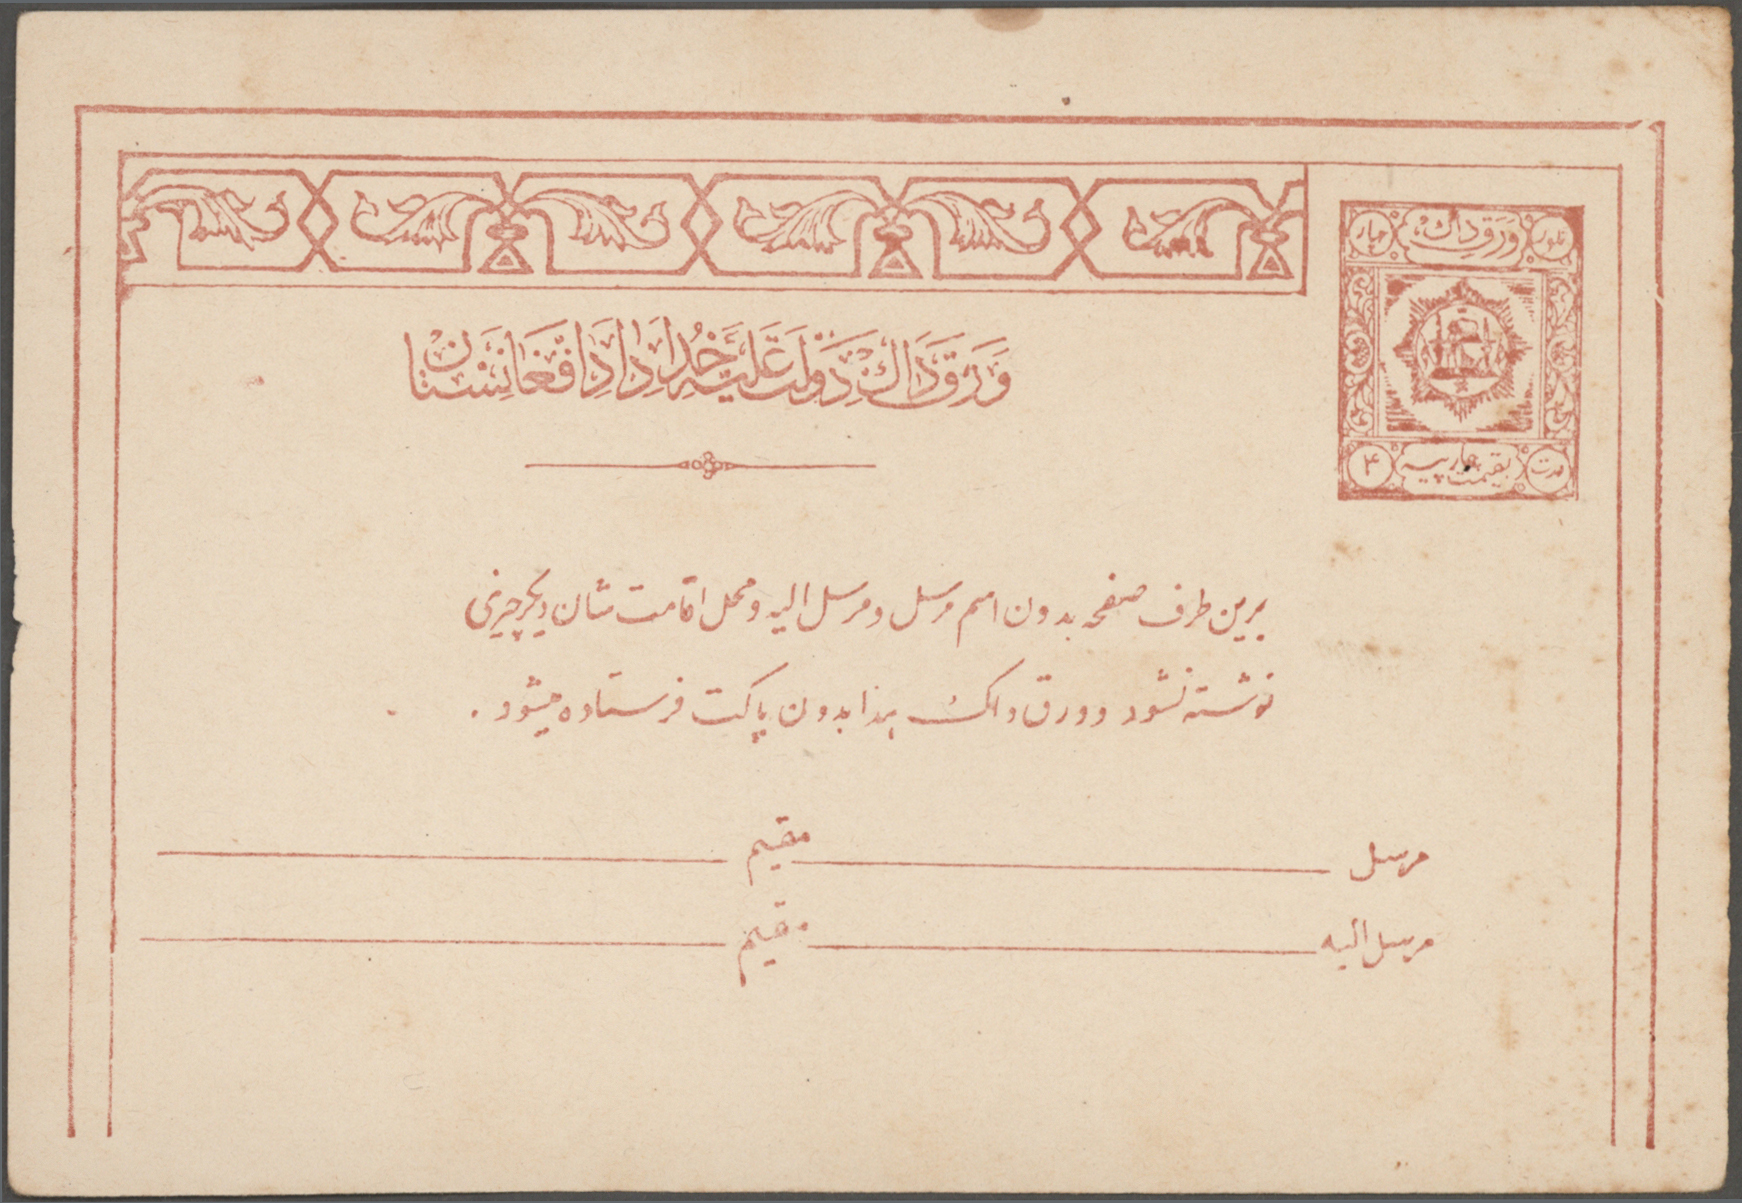 وَرَقِ دَاكِ دَوْلَتِ عَلِيَّهٔ خُدَادَادِ اَفْغَانِسْتَان
ورق داک
چهار
بقیمت چهار پیسه
۴
برین طرف صفحه بدون اسم مرسل و مرسل الیه و محل اقامت شان دیگر چیزی
نوشته نشود و ورق داک هذا بدون پاکت فرستاده میشود .
مرسل مقیم
مرسل الیه مقیم